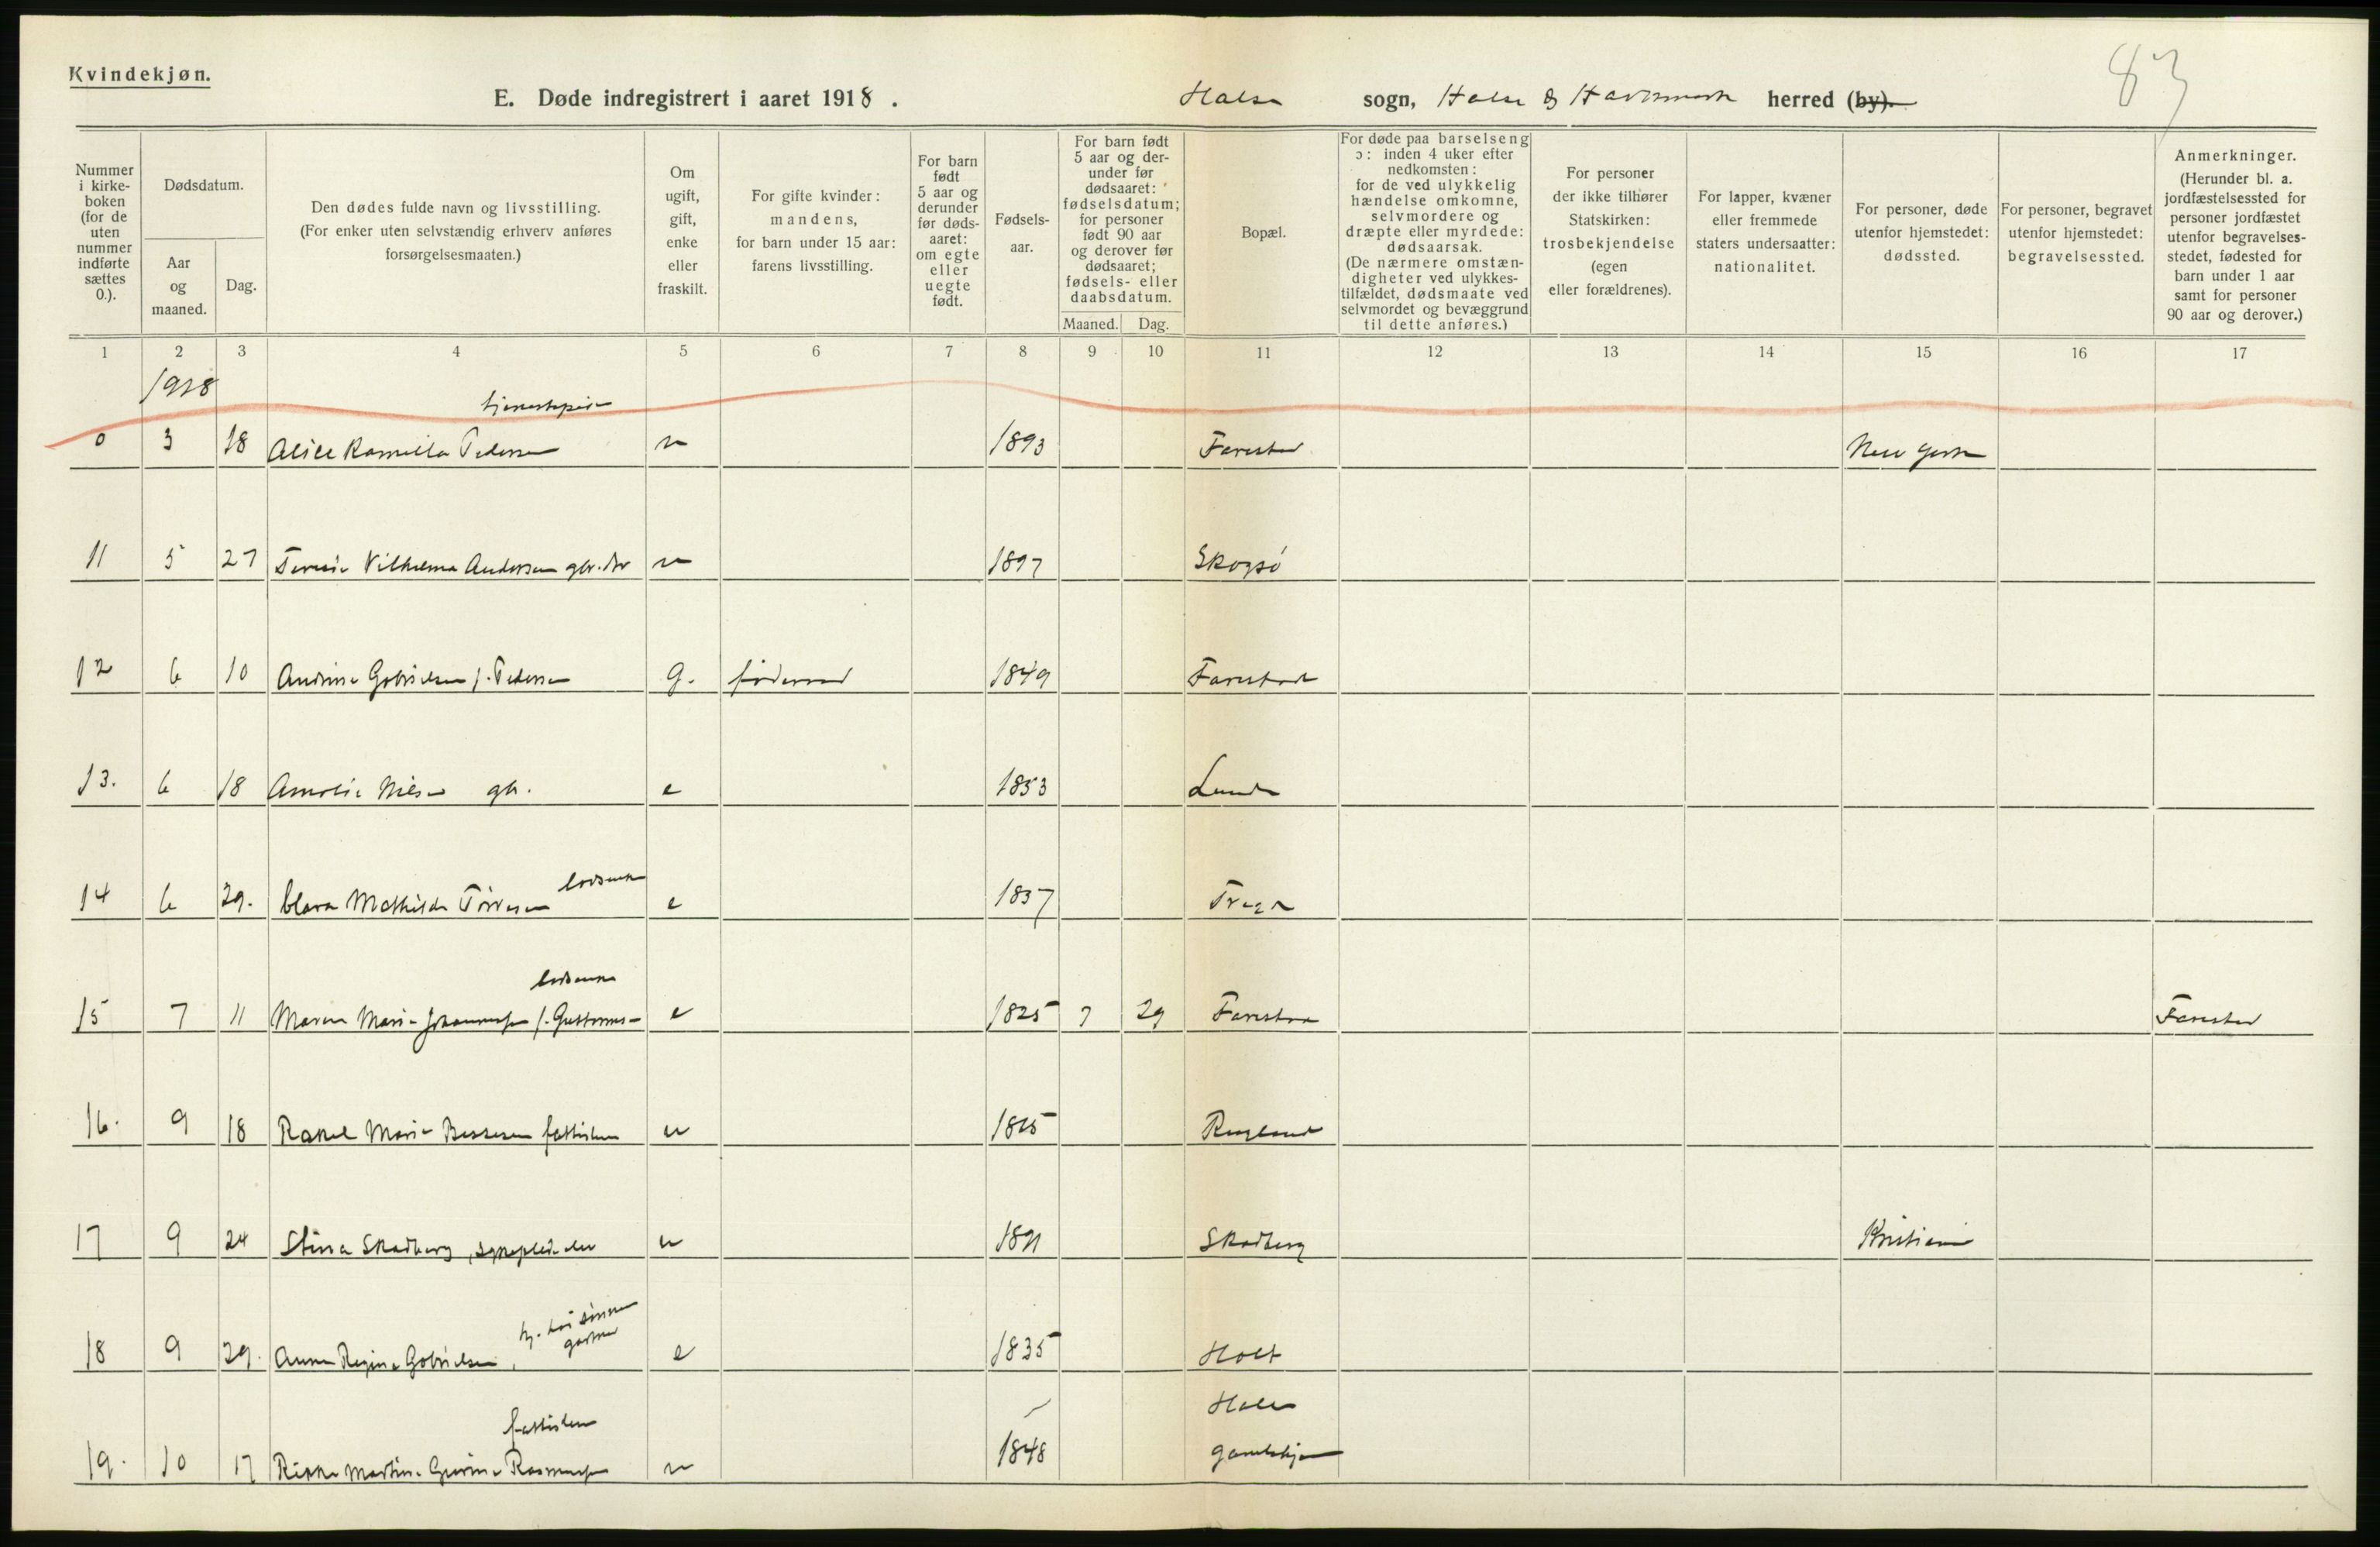 Kvindekjøn.
83
E. Døde indregistrert i aaret 1918.
Halse sogn, Halse & Harkmark herred (by).
Nummer i kirkeboken (for de uten nummer indførte sættes 0.).
Dødsdatum.
Aar og maaned.
Dag.
Den dødes fulde navn og livsstilling. (For enker uten selvstændig erhverv anføres forsørgelsesmaaten.)
Om ugift, gift, enke eller fraskilt.
For gifte kvinder: mandens, for barn under 15 aar: farens livsstilling.
For barn født 5 aar og derunder før dødsaaret: om egte eller uegte født.
Fødselsaar.
For barn født 5 aar og derunder før dødsaaret: fødselsdatum; for personer født 90 aar og derover før dødsaaret; fødsels- eller daabsdatum.
Maaned. Dag.
Bopæl.
For døde paa barselseng ɔ: inden 4 uker efter nedkomsten: for de ved ulykkelig hændelse omkomne, selvmordere og dræpte eller myrdede: dødsaarsak. (De nærmere omstændigheter ved ulykkestilfældet, dødsmaate ved selvmordet og bevæggrund til dette anføres.)
For personer der ikke tilhører Statskirken: trosbekjendelse (egen eller forældrenes).
For lapper, kvæner eller fremmede staters undersaatter: nationalitet.
For personer, døde utenfor hjemstedet: dødssted.
For personer, begravet utenfor hjemstedet: begravelsessted.
Anmerkninger. (Herunder bl. a. jordfæstelsessted for personer jordfæstet utenfor begravelsesstedet, fødested for barn under 1 aar samt for personer 90 aar og derover.)
1 2 3 4 5 6 7 8 9 10 11 12 13 14 15 16 17
1918
tjenestepige
0 3 18 Alice Kamilla Pedersen u 1893 Farestad New York
11 5 27 Vilhelma Andersen gbr. dtr u 1897 Skogsø
12 6 10 Andrine Gabrielsen f. Pedersen g. føderaad 1849 Farestad
13. 6 18 Amalie Nilsen gb. e 1853 Lunde
lodsenke
14 6 29. Clara Mathilde Tørresen e 1837 Tregde
lodsenke
15 7 11 Maren Marie Johannesen f. e 1825 7 29 Farestad Farestad
16. 9 18 Rakel Marie Bessesen fattiglem u Ringland
17 9 24 Stina Skadberg, sykepleierske u Skadberg Kristiania
hj. hos sønnen
gartner
18 9 29. Anna Regine Gabrielsen, e 1835 Holt
fattiglem Halse
19. 10 17 Rikke Martine Gurine Rasmussen u 1848 gamlehjem